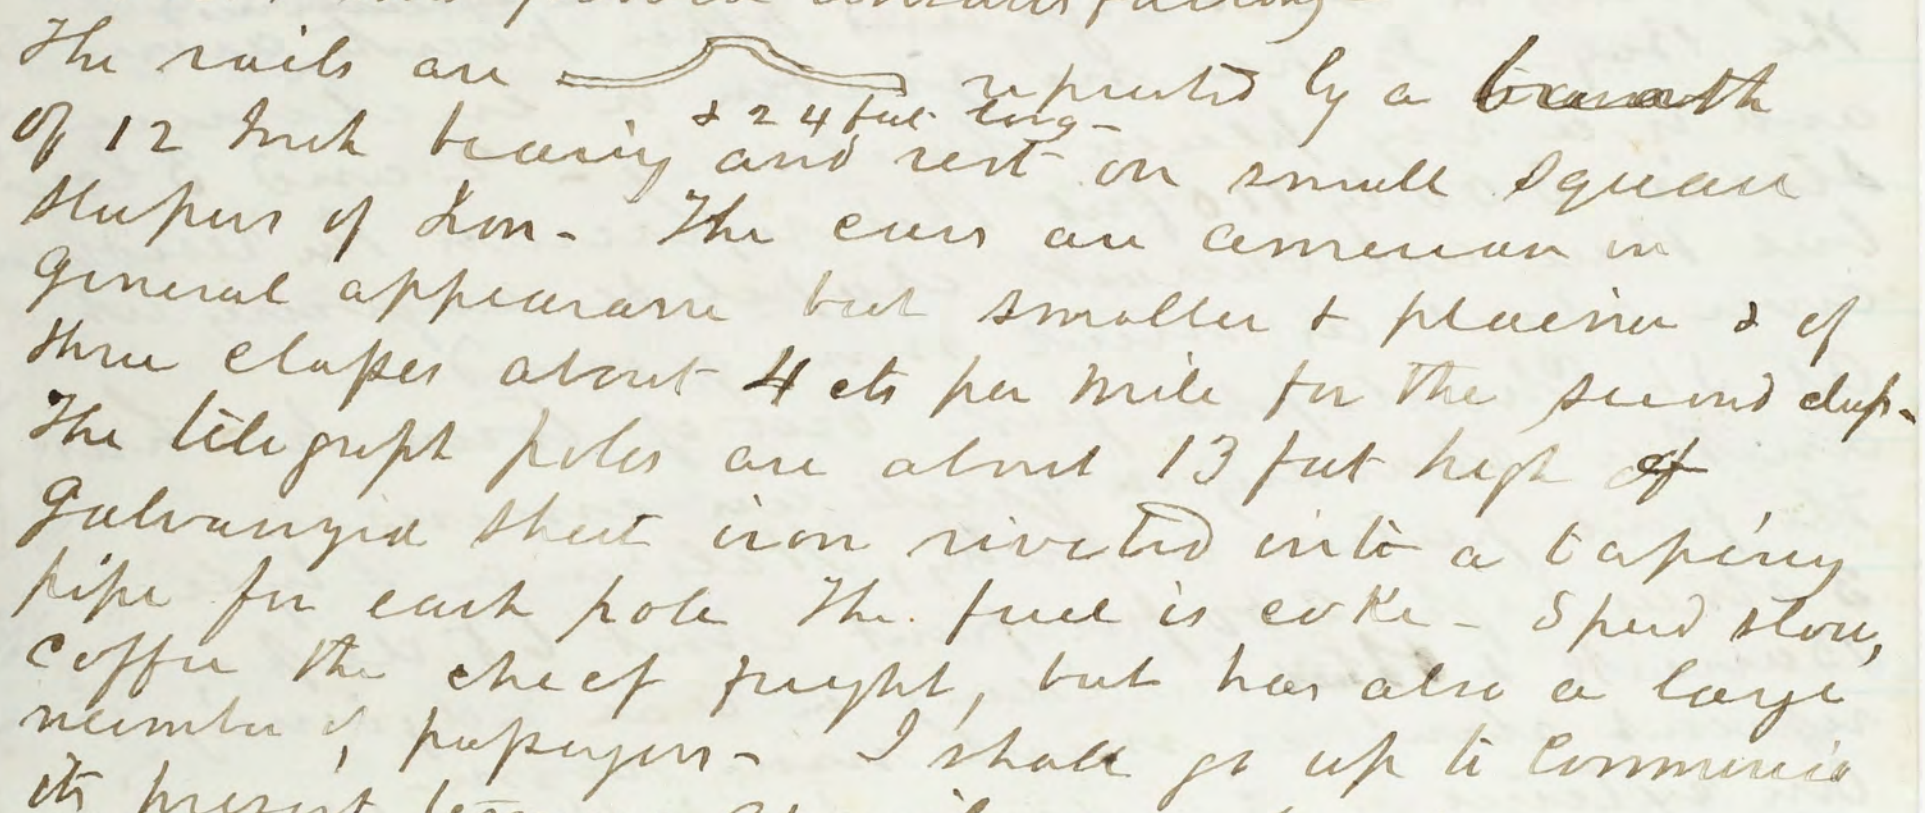 The rails are represented by a breadth
& 24 feet long-
of 12 Inch bearing and rest on small square
sleepers of Iron- The cars are american in
General appearance but smaller & plainer & of
three classes about 4 cts per mile for the second class-
The telegraph poles are about 13 feet high of
Galvanized sheet iron riveted into a tapering
pipe for each pole The fuel is coke- Speed slow,
coffee the chief freight, but has also a large
number of passengers- I shall go up to Commercio
its present